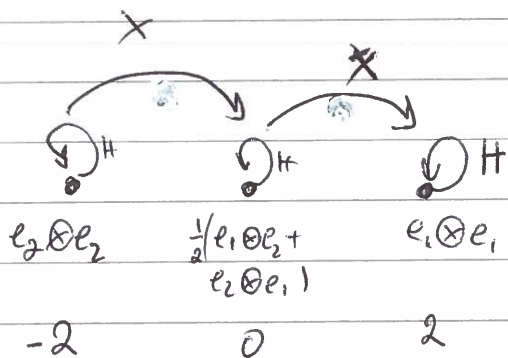 X X
H H H
e₂⊗e₂ ½(e₁⊗e₂+ e₁⊗e₁
e₂⊗e₁)
-2 0 2